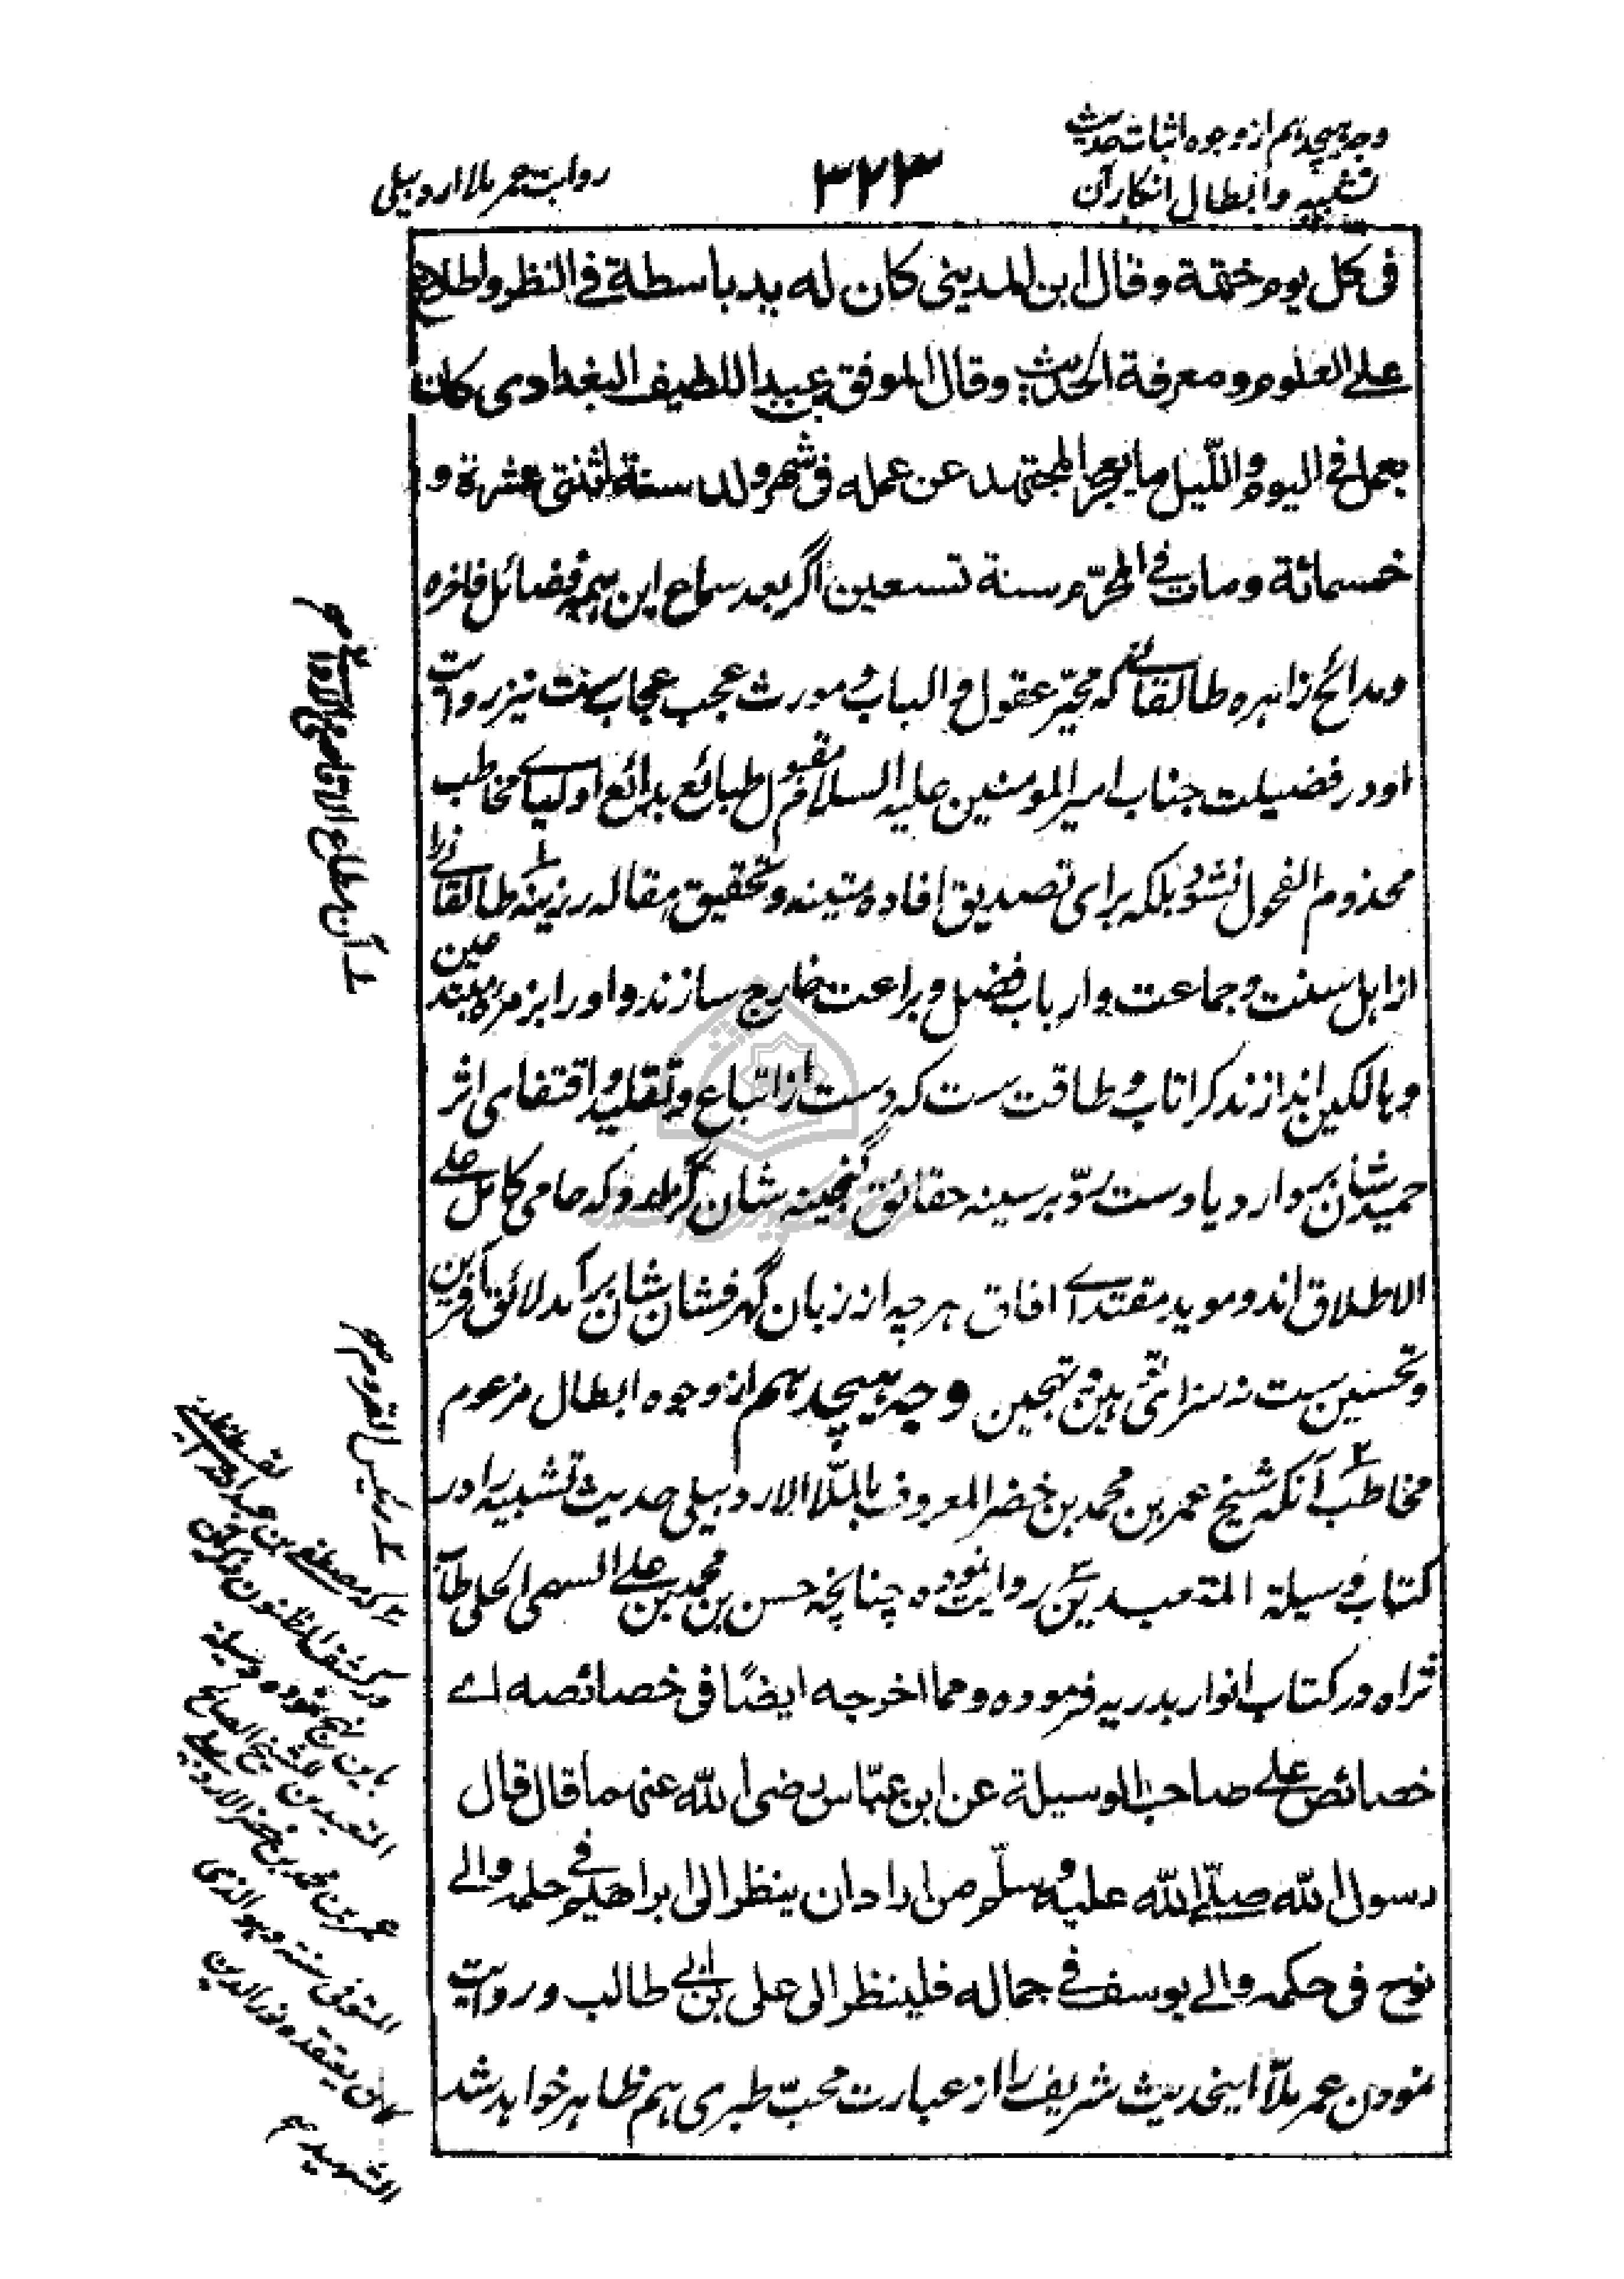 وجه هیچدهم از وجوه اثبات حدیث
تشبیه و ابطال انکار آن
۳۲۳
روایت عمر ملا اردبیلی
فی کل یوم ختمة وقال ابن المدینی کان له ید باسطة فی النظر واطلاع
علی العلوم ومعرفة الحدیث وقال الموفق بن عبد اللطیف البغدادی کان
یعمل فی الیوم واللّیل ما یعجز المجتهد عن عمله فی شهر ولد سنة اثنتی عشرة و
خمسمائة ومات فی المحرّم سنة تسعین اگر بعد سماع این همه فضائل فاخره
ومدائح زاهره طالقانی که محیّر عقول و الباب و مورث عجب عجاب ست نیز روایت
او در فضیلت جناب امیر المومنین علیه السلام مقبول طبائع بدائع اولیای مخاطب
مخذوم الفحول نشود بلکه برای تصدیق افاده متینه و تحقیق مقاله رزینه طالقانی را
از اهل سنت و جماعت و ارباب فضل و براعت خارج سازند و او را بزمره مبتدعین
و هالکین اندازند کرا تاب و طاقت ست که دست از اتباع و تقلید و اقتفای اثر
حمیدشان بردارد یا دست ردّ بر سینه حقائق گنجینه شان گزارد و که حامی کامل علی
الاطلاق اند و موید مقتدای افاق هر چه از زبان گهرفشان شان برآید لائق آفرین
و تحسین ست نه سزای توهین و تهجین وجه هیچدهم از وجوه ابطال مزعوم
مخاطب آنکه شیخ عمر بن محمد بن خضر المعروف بالملّا الاردبیلی حدیث تشبیه را در
کتاب وسیلة المتعبدین روایت نموده چنانچه حسن بن محمد بن علی السهمی الحلی طاب
ثراه در کتاب انوار بدریه فرموده ومما اخرجه ایضًا فی خصائصه اے
خصائص علی صاحب الوسیلة عن ابن عبّاس رضی الله عنهما قال قال
رسول الله صلّی الله علیه وسلّم من اراد ان ینظر الی ابراهیم فی حلمه والی
نوح فی حکمه والی یوسف فی جماله فلینظر الی علی بن ابی طالب و روایت
نمودن عمر ملّا اینحدیث شریف را از عبارت محبّ طبری هم ظاهر خواهد شد
در کشف الظنون
باین نهج نموده وسیلة
المتعبدین للشیخ الصالح
عمر بن محمد بن خضر الاردبیلی
المتوفی سنة وهو الذی
کان یعتقده نور الدین
الشهید